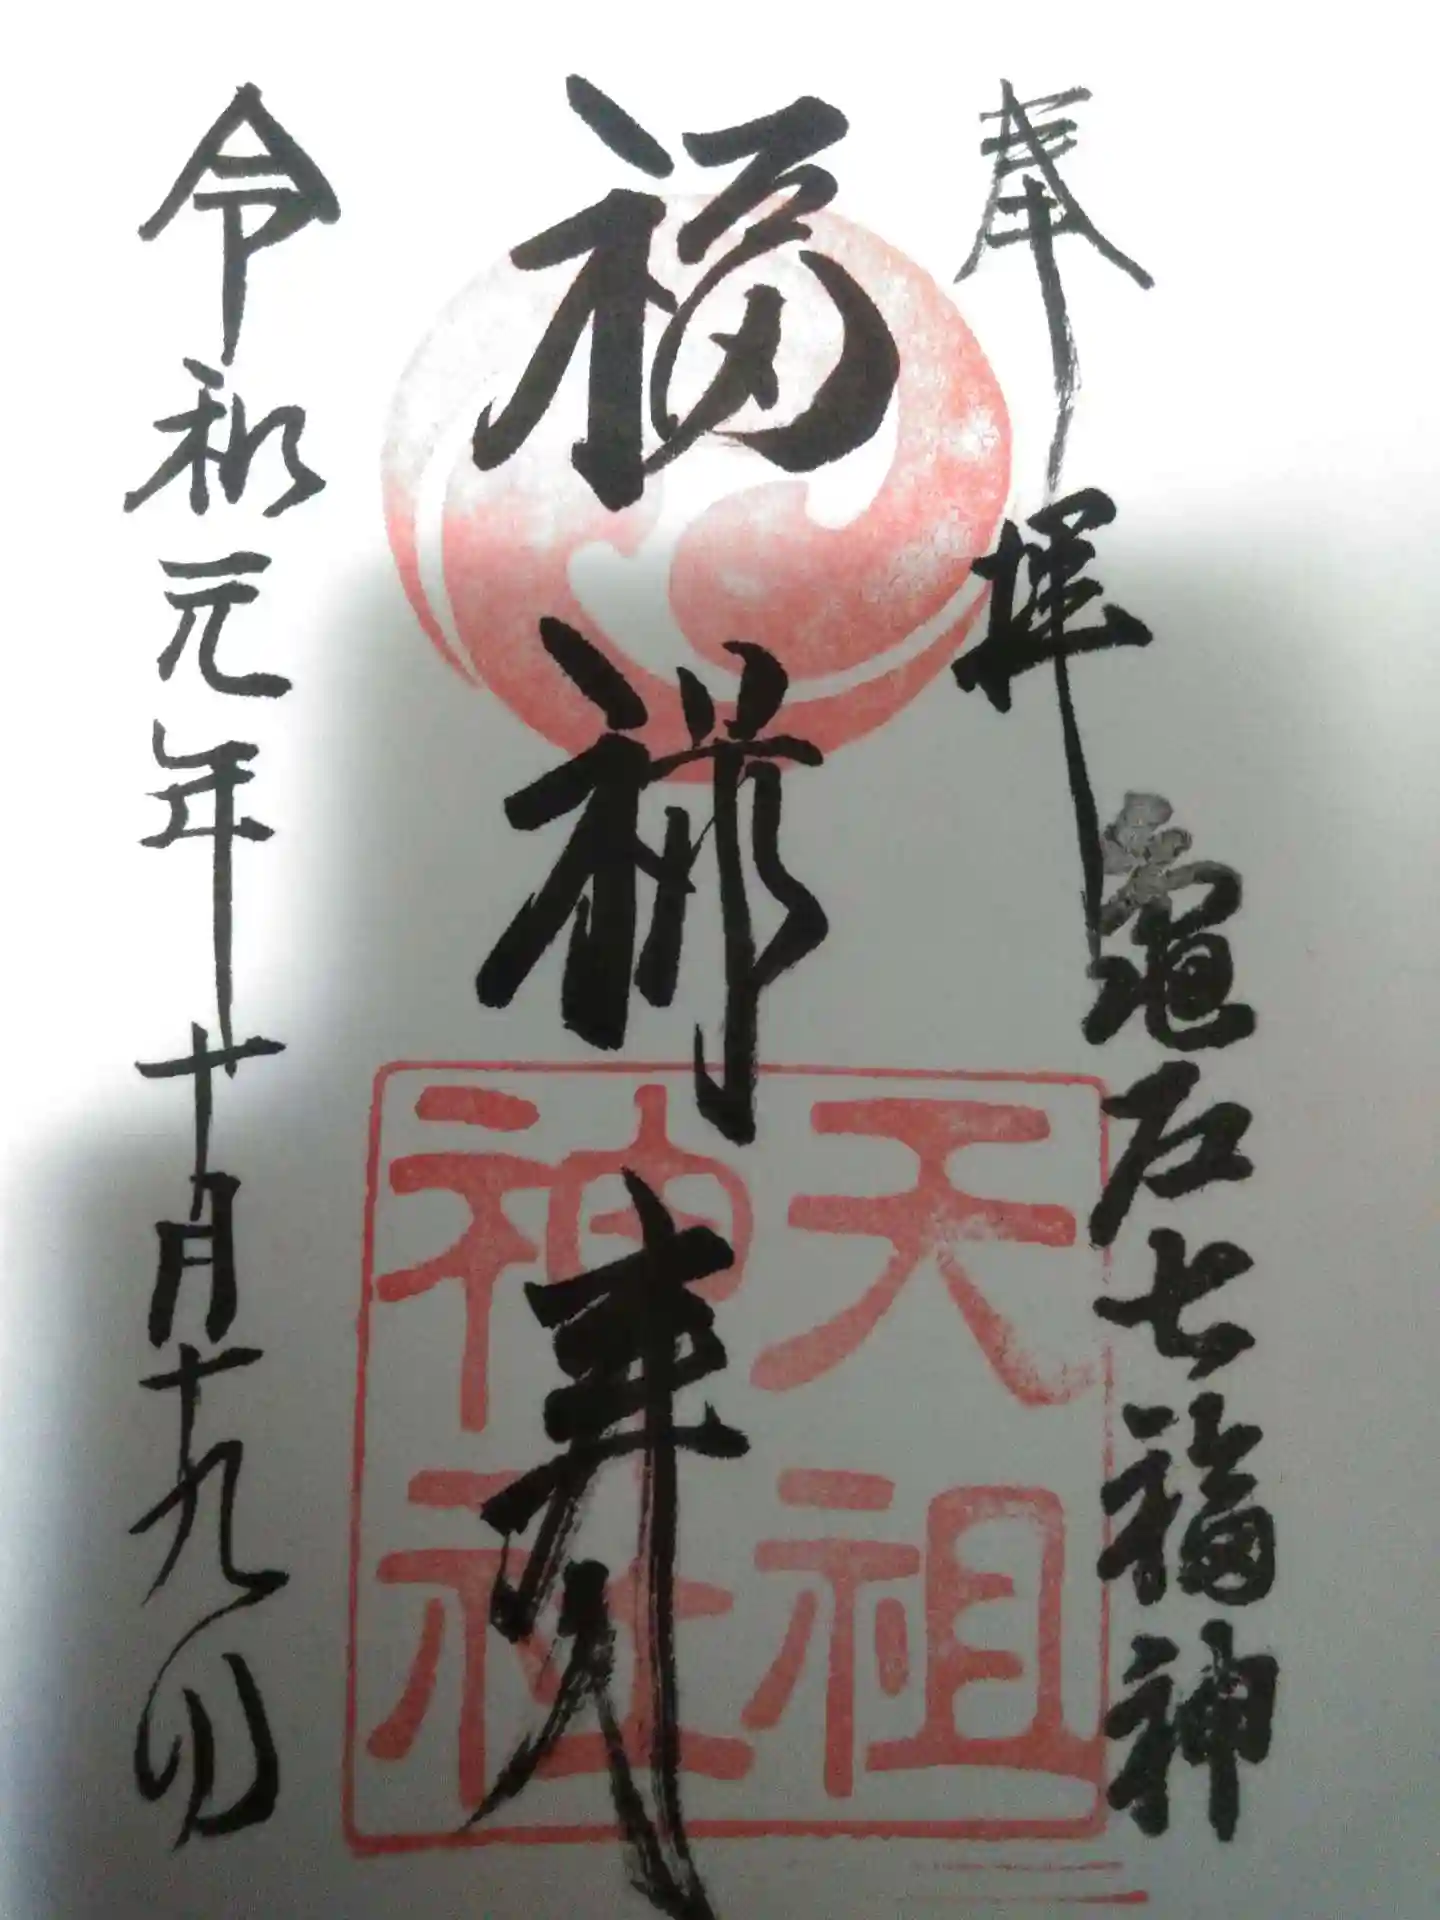 奉拝
龜戸七福神
福禄寿
天祖
神社
令和元年十月十九日